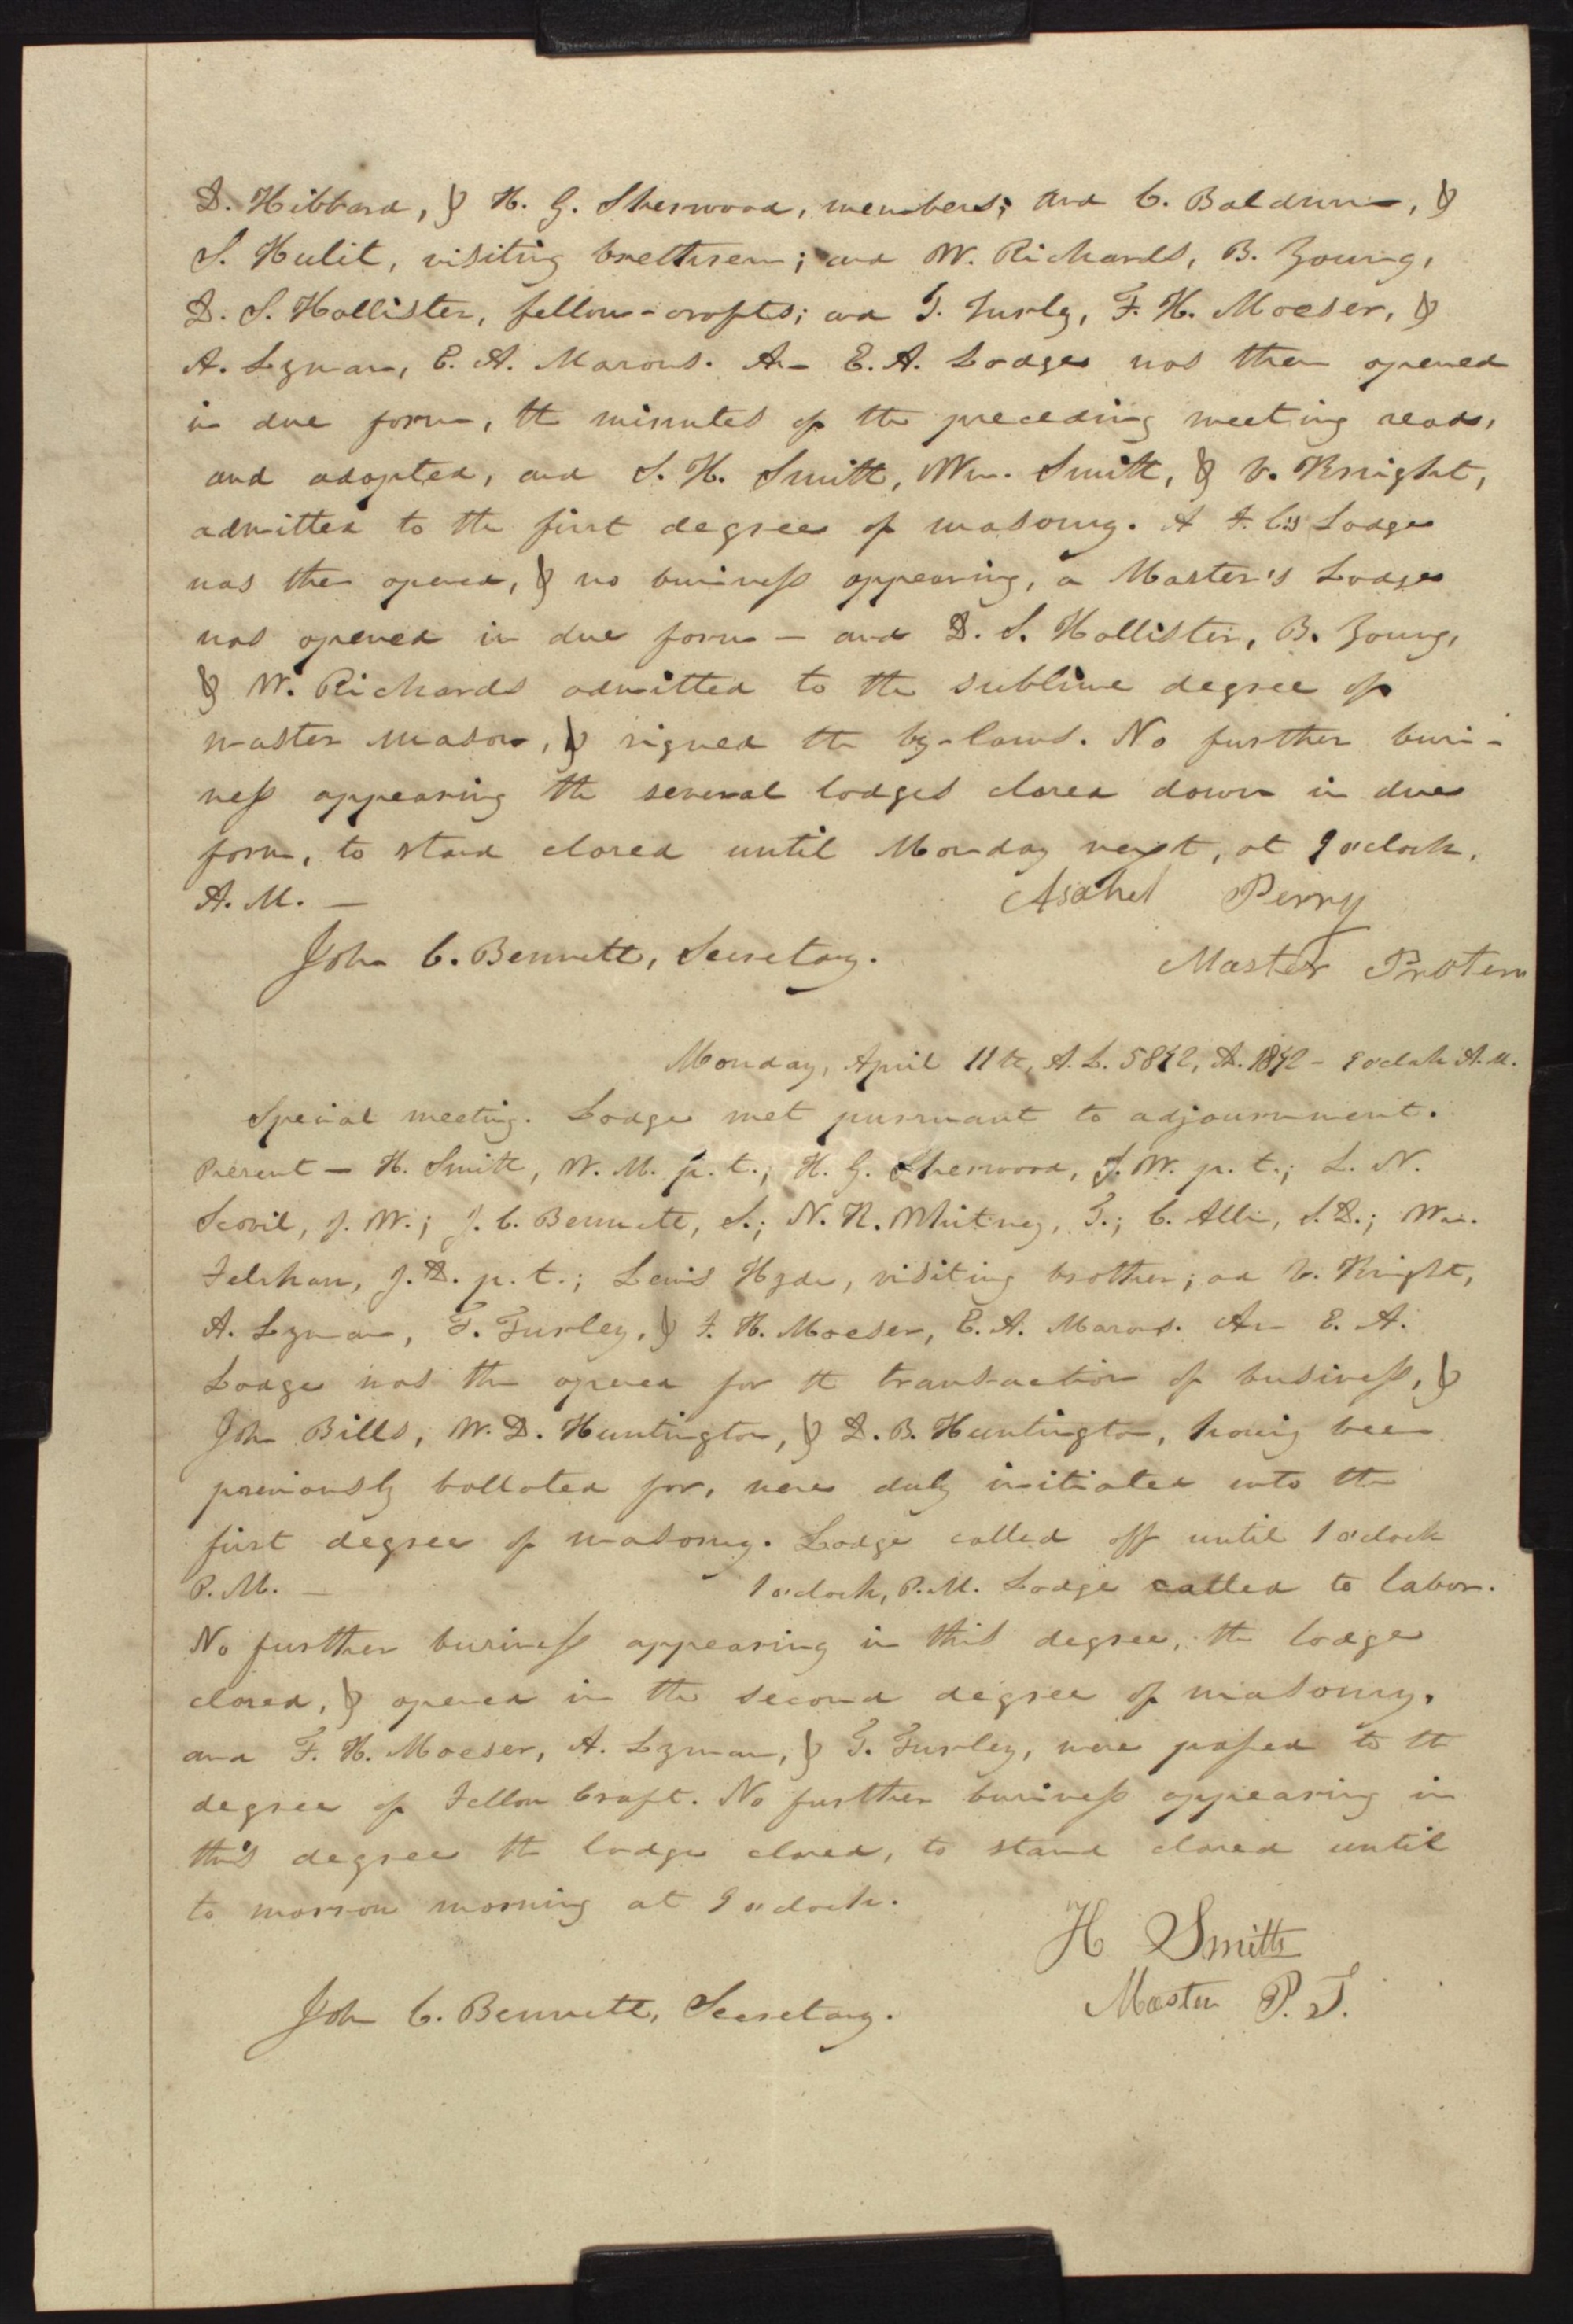 D. Hibbard, & H. G. Sherwood, members; and C. Baldwin, &
S. Hulit, visiting brethren; and W. Richards, B. Young,
D. S. Hollister, fellow-crafts; and T. Turly, F. H. Moeser, &
A. Lyman, E. A. Masons. An E. A. Lodge was then opened
in due form, the minutes of the preceding meeting read,
and adopted, and S. H. Smith, Wm. Smith, & V. Knight,
admitted to the first degree of masonry. A F. C.'s Lodge
was then opened, & no business appearing, a Master's Lodge
was opened in due form — and D. S. Hollister, B. Young,
& W. Richards admitted to the sublime degree of
master mason, & signed the by-laws. No further busi-
ness appearing the several lodges closed down in due
form, to stand closed until Monday next, at 9 o'clock,
A. M. — Asahel Perry
John C. Bennett, Secretary. Master Protem
Monday, April 11th, A. L. 5842, A. 1842 - 9 o'clock A. M.
Special meeting. Lodge met pursuant to adjournment.
Present — H. Smith, W. M. p. t.; H. G. Sherwood, S. W. p. t.; L. N.
Scovil, J. W.; J. C. Bennett, S.; N. K. Whitney, T.; C. Allen, S. D.; Wm.
Felshaw, J. D. p. t.; Lewis Hyde, visiting brother; and V. Knight,
A. Lyman, T. Turley, & F. H. Moeser, E. A. Masons. An E. A.
Lodge was then opened for the transaction of business, &
John Bills, W. D. Huntington, & D. B. Huntington, having been
previously balloted for, were duly initiated into the
first degree of masonry. Lodge called off until 1 o'clock
P. M. — 1 o'clock, P. M. Lodge called to labor.
No further business appearing in this degree, the lodge
closed, & opened in the second degree of masonry,
and F. H. Moeser, A. Lyman, & T. Turley, were passed to the
degree of Fellow Craft. No further business appearing in
this degree the lodge closed, to stand closed until
to morrow morning at 9 o'clock.
H Smith
John C. Bennett, Secretary. Master P. T.